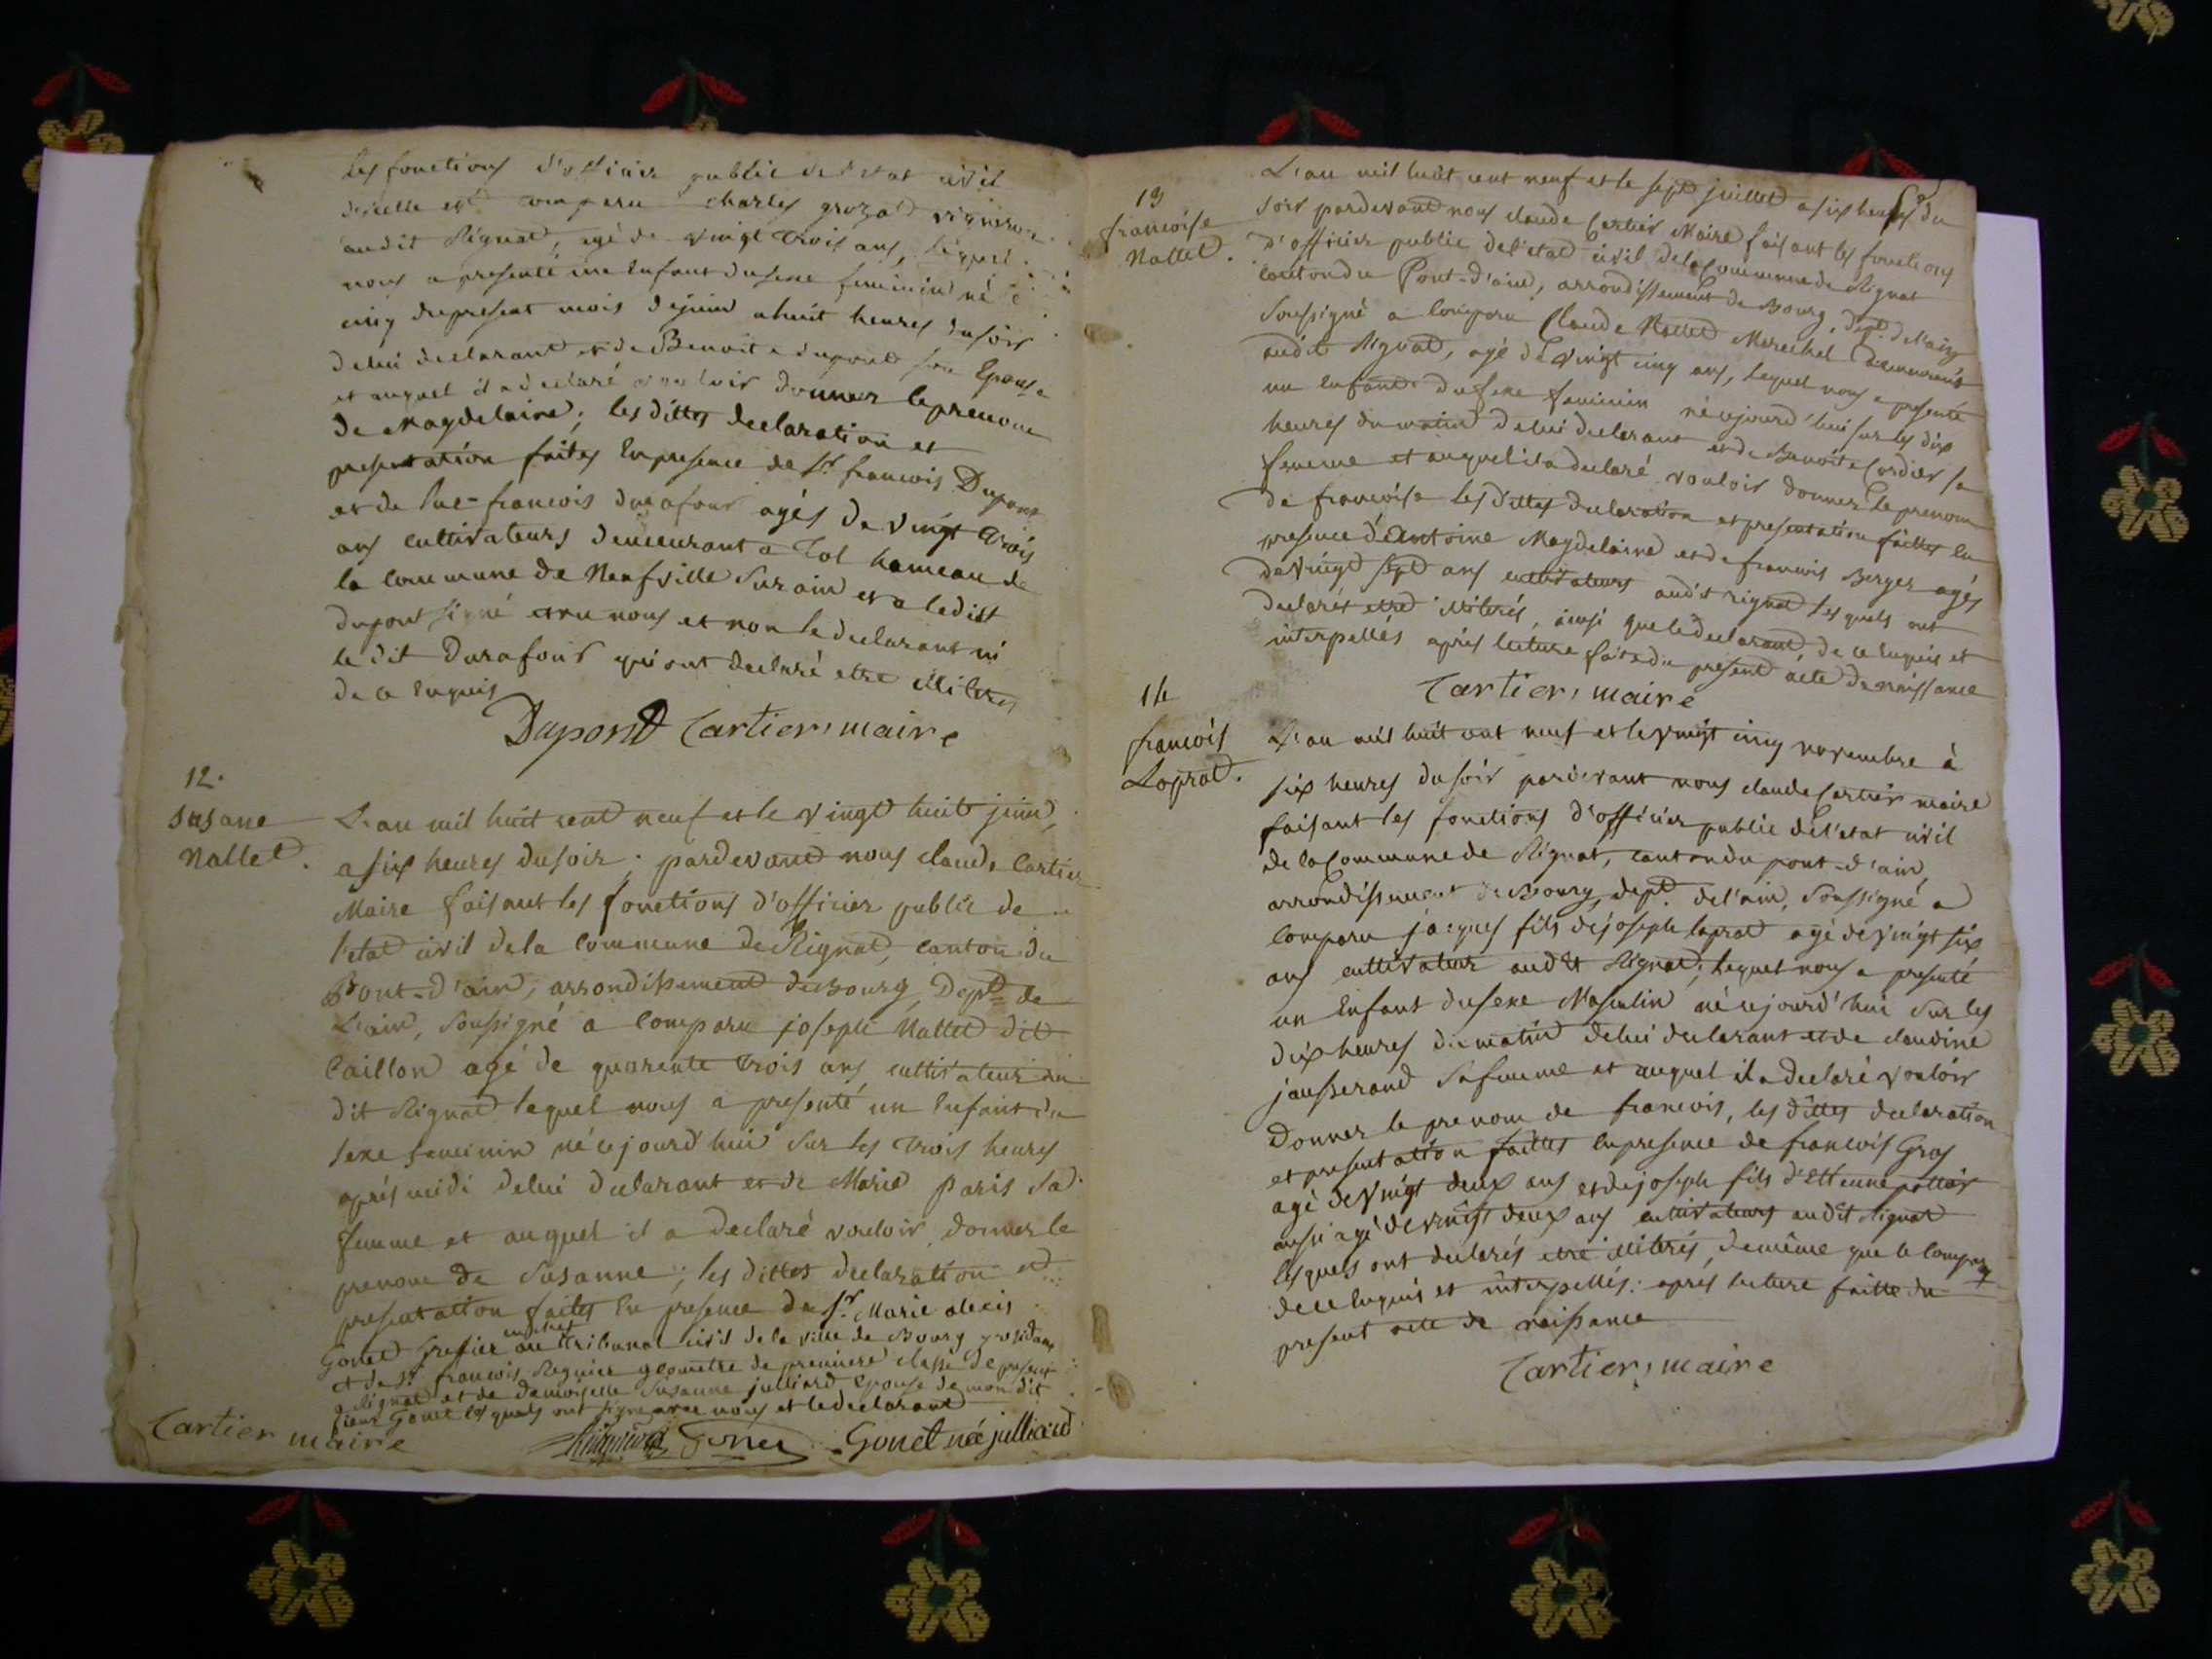 les fonctions d'officier public de l'etat civil
d'icelle est comparu charles grozat vigneron
audit Rignat, agé de vingt trois ans, lequel
nous a presenté un Enfant du sexe feminin né le
cinq du present mois de juin a huit heures du soir
de lui declarant et de Benoite dupont son Epouse
et auquel il a declaré vouloir donner le prenom
de Magdelaine; les dittes declaration et
presentation faites En presence de Sr. francois Dupont
et de Luc-francois durafour agés de vingt trois
ans cultivateurs demeurant a Tol hameau de
la Commune de Neufville sur ain et a ledist
dupont signé avec nous et non le declarant ni
le dit Durafour qui ont declaré etre illitrés
de ce Enquis
Dupont Cartier, maire
12.
Susane
Nallet.
L'an mil huit cent neuf et le vingt huit juin,
a six heures du soir; pardevant nous claude Cartier
Maire faisant les fonctions d'officier public de
l'etat civil de la Commune de Rignat, canton du
Pont-d'ain, arrondissement de Bourg, Dept. de
L'ain, soussigné a Comparu joseph Nallet dit
Caillon agé de quarente trois ans cultivateur au
dit Rignat lequel nous a presenté un Enfant du
sexe feminin né cejourd'hui sur les trois heures
aprés midi de lui declarant et de Marie paris sa
femme et auquel il a declaré vouloir donner le
prenom de Susanne; les dittes declaration et
presentation faites En presence de Sr. Marie alexis
Gonet grefier au tribunal civil de la ville de Bourg y residant
et de Sr. francois Reguier géometre de premiere classe de present
a Rignat et de demoiselle Susanne julliard Epouse de mon dit
sieur Gonet lesquels ont signé avec nous et le declarant
Cartier maire
Gonet Gonet née julliard
13
francoise
Nallet.
L'an mil huit cent neuf et le sept juillet a six heures du
soir pardevant nous claude Cartier Maire faisant les fonctions
d'officier public de l'etat civil de la Commune de Rignat
canton du Pont-d'ain, arrondissement de Bourg, dept. de l'ain
soussigné a Comparu Claude Nallet Marechal demeurant
audit Rignat, agé de vingt cinq ans, lequel nous a presenté
un Enfant du sexe feminin né cejourd'hui sur les dix
heures du matin de lui declarant et de Benoite Cordier sa
femme et auquel il a declaré vouloir donner le prenom
de francoise les dittes declaration et presentation faittes En
presence d'Antoine Magdelaine et de francois Berger agés
de vingt sept ans cultivateurs audit rignat lesquels ont
declarés etre illiterés, ainsi que le declarant, de ce Enquis et
interpellés aprés lecture faite du present acte de naissance
Cartier, maire
14
francois
Laprat.
L'an mil huit cent neuf et le vingt cinq novembre à
six heures du soir pardevant nous claude Cartier maire
faisant les fonctions d'officier public de l'etat civil
de la Commune de Rignat, canton du pont-d'ain,
arrondissement de Bourg, dept. de l'ain, soussigné a
Comparu jacques fils de joseph laprat agé de vingt six
ans cultivateur audit Rignat; lequel nous a presenté
un Enfant du sexe Masculin né cejourd'hui sur les
dix heures du matin de lui declarant et de claudine
jausserand sa femme et auquel il a declaré vouloir
donner le prenom de francois, les dittes declaration
et presentation faittes En presence de francois Gros
agé de vingt deux ans et de joseph fils d'Ettienne
aussi agé de vingt deux ans cultivateurs audit Rignat
lesquels ont declarés etre illiterés, de même que le comparu
de ce Enquis et interpellés: apres lecture faitte du
present acte de naissance
Cartier, maire